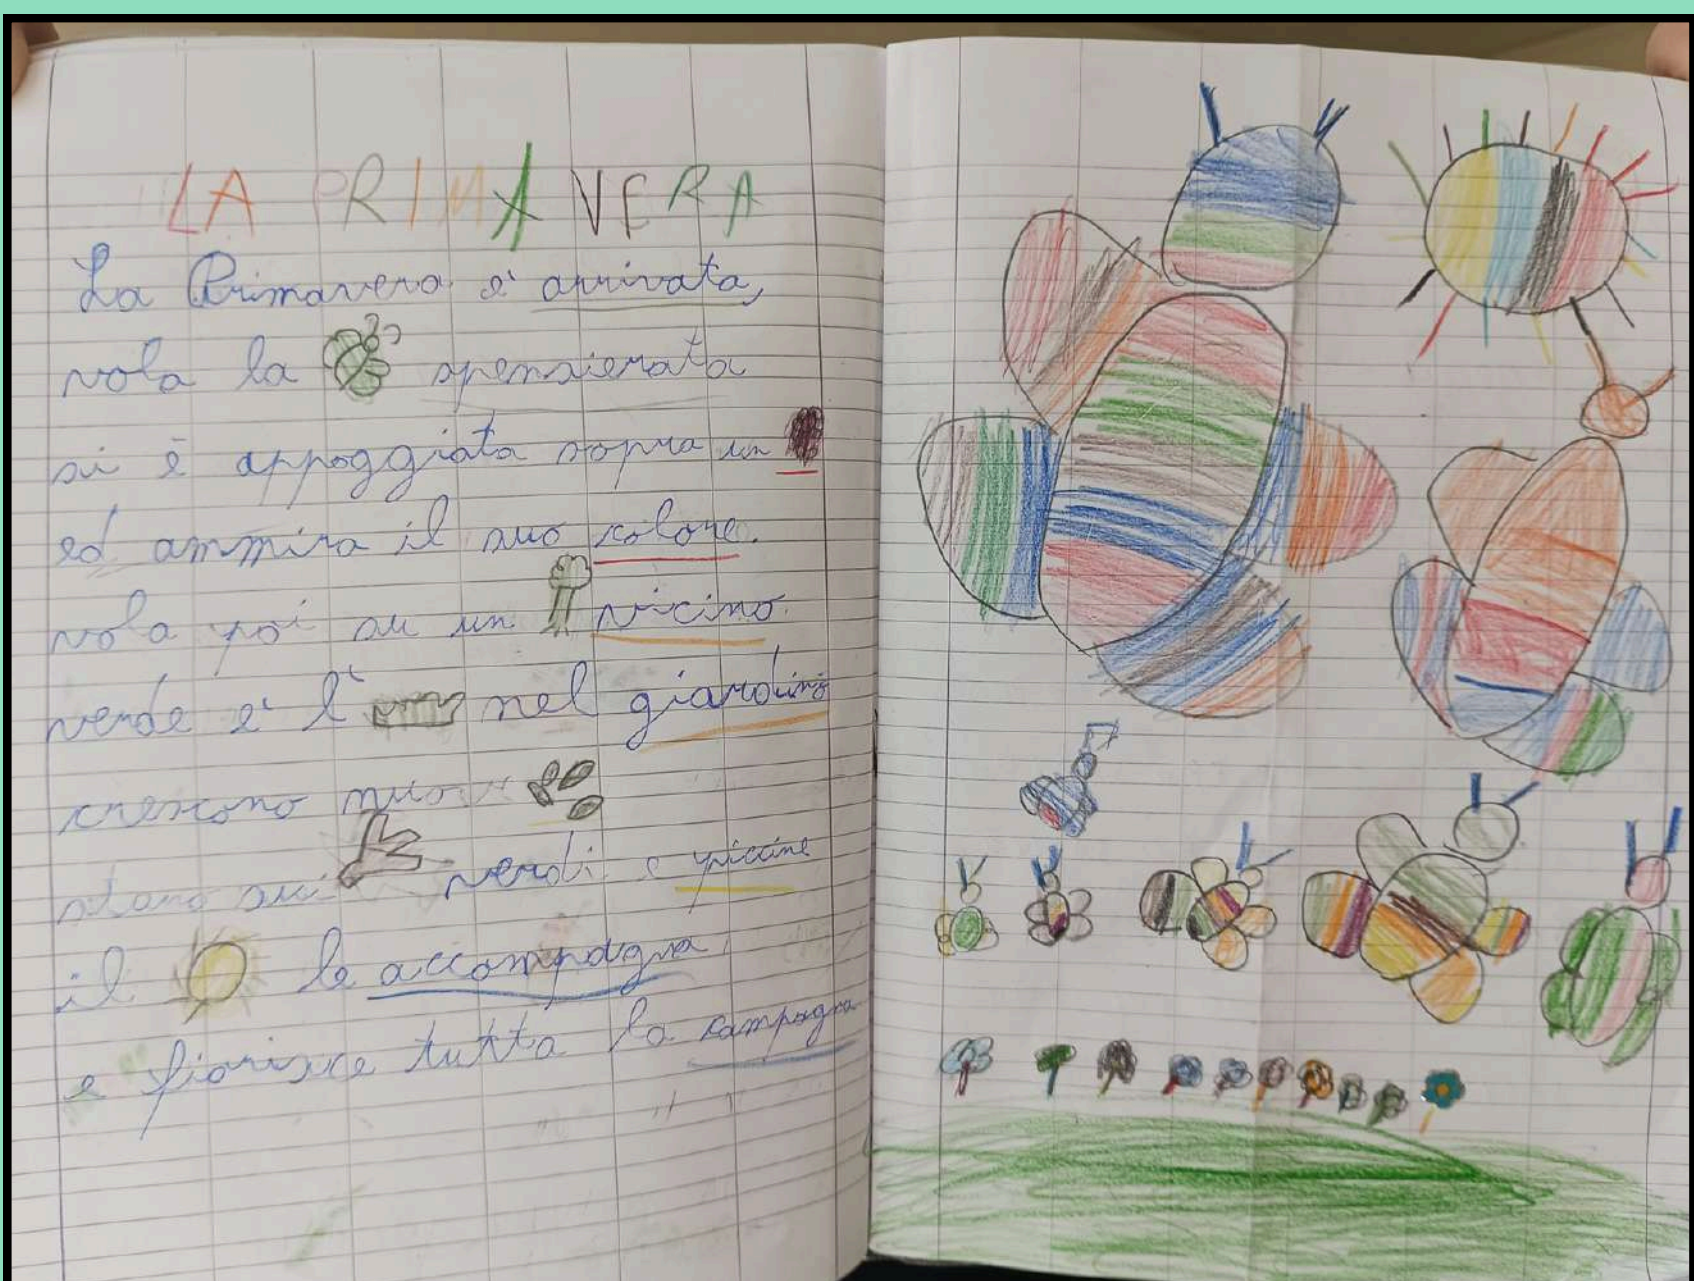 LA PRIMAVERA
La Primavera è arrivata,
vola la spensierata
si è appoggiata sopra un
ed ammira il suo colore.
vola poi su un vicino.
verde e' l' nel giardino
crescono nuove
stano sui verdi e piccine
il le accompagna
e fiorisce tutta la campagna